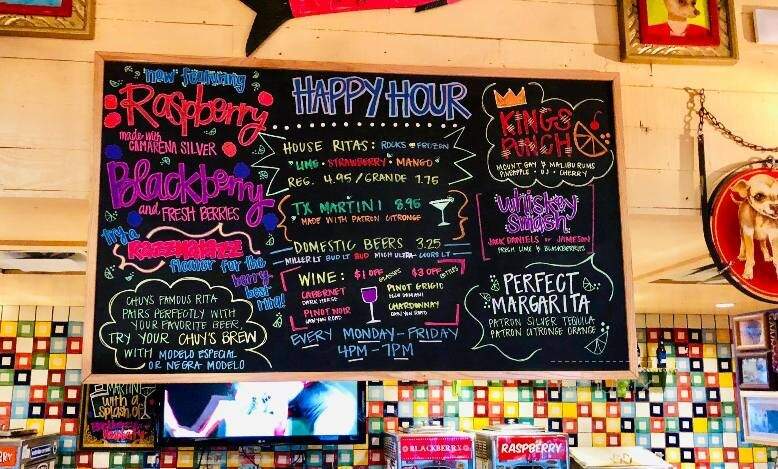 now featuring
Raspberry
made with
CAMARENA SILVER
Blackberry
and FRESH BERRIES
try a
RAZZMATAZZ
floater for the
berry
best
rita!
CHUYS FAMOUS RITA
PAIRS PERFECTLY WITH
YOUR FAVORITE BEER.
TRY YOUR CHUY'S BREW
WITH MODELO ESPECIAL
OR NEGRA MODELO
HAPPY HOUR
HOUSE RITAS: ROCKS or FROZEN
LIME • STRAWBERRY • MANGO
REG. 4.95/GRANDE 1.75
TX MARTINI 8.95
MADE WITH PATRON CITRONGE
DOMESTIC BEERS 3.25
MILLER LT BUD LT BUD MICH ULTRA COORS LT
WINE: $1 OFF GLASSES $3 OFF BOTTLES
CABERNET
DARK HORSE
PINOT NOIR
CANYON ROAD
PINOT GRIGIO
CHARDONNAY
CANYON ROAD
EVERY MONDAY-FRIDAY
4PM-7PM
KINGS
PUNCH
MOUNT GAY & MALIBU RUMS
PINEAPPLE • OJ • CHERRY
Whiskey
Smash
JACK DANIELS or JAMESON
FRESH LIME & BLACKBERRIES
PERFECT
MARGARITA
PATRON SILVER TEQUILA
PATRON CITRONGE ORANGE
MARTINI
with a
splash of
BLACKBERRY
RASPBERRY